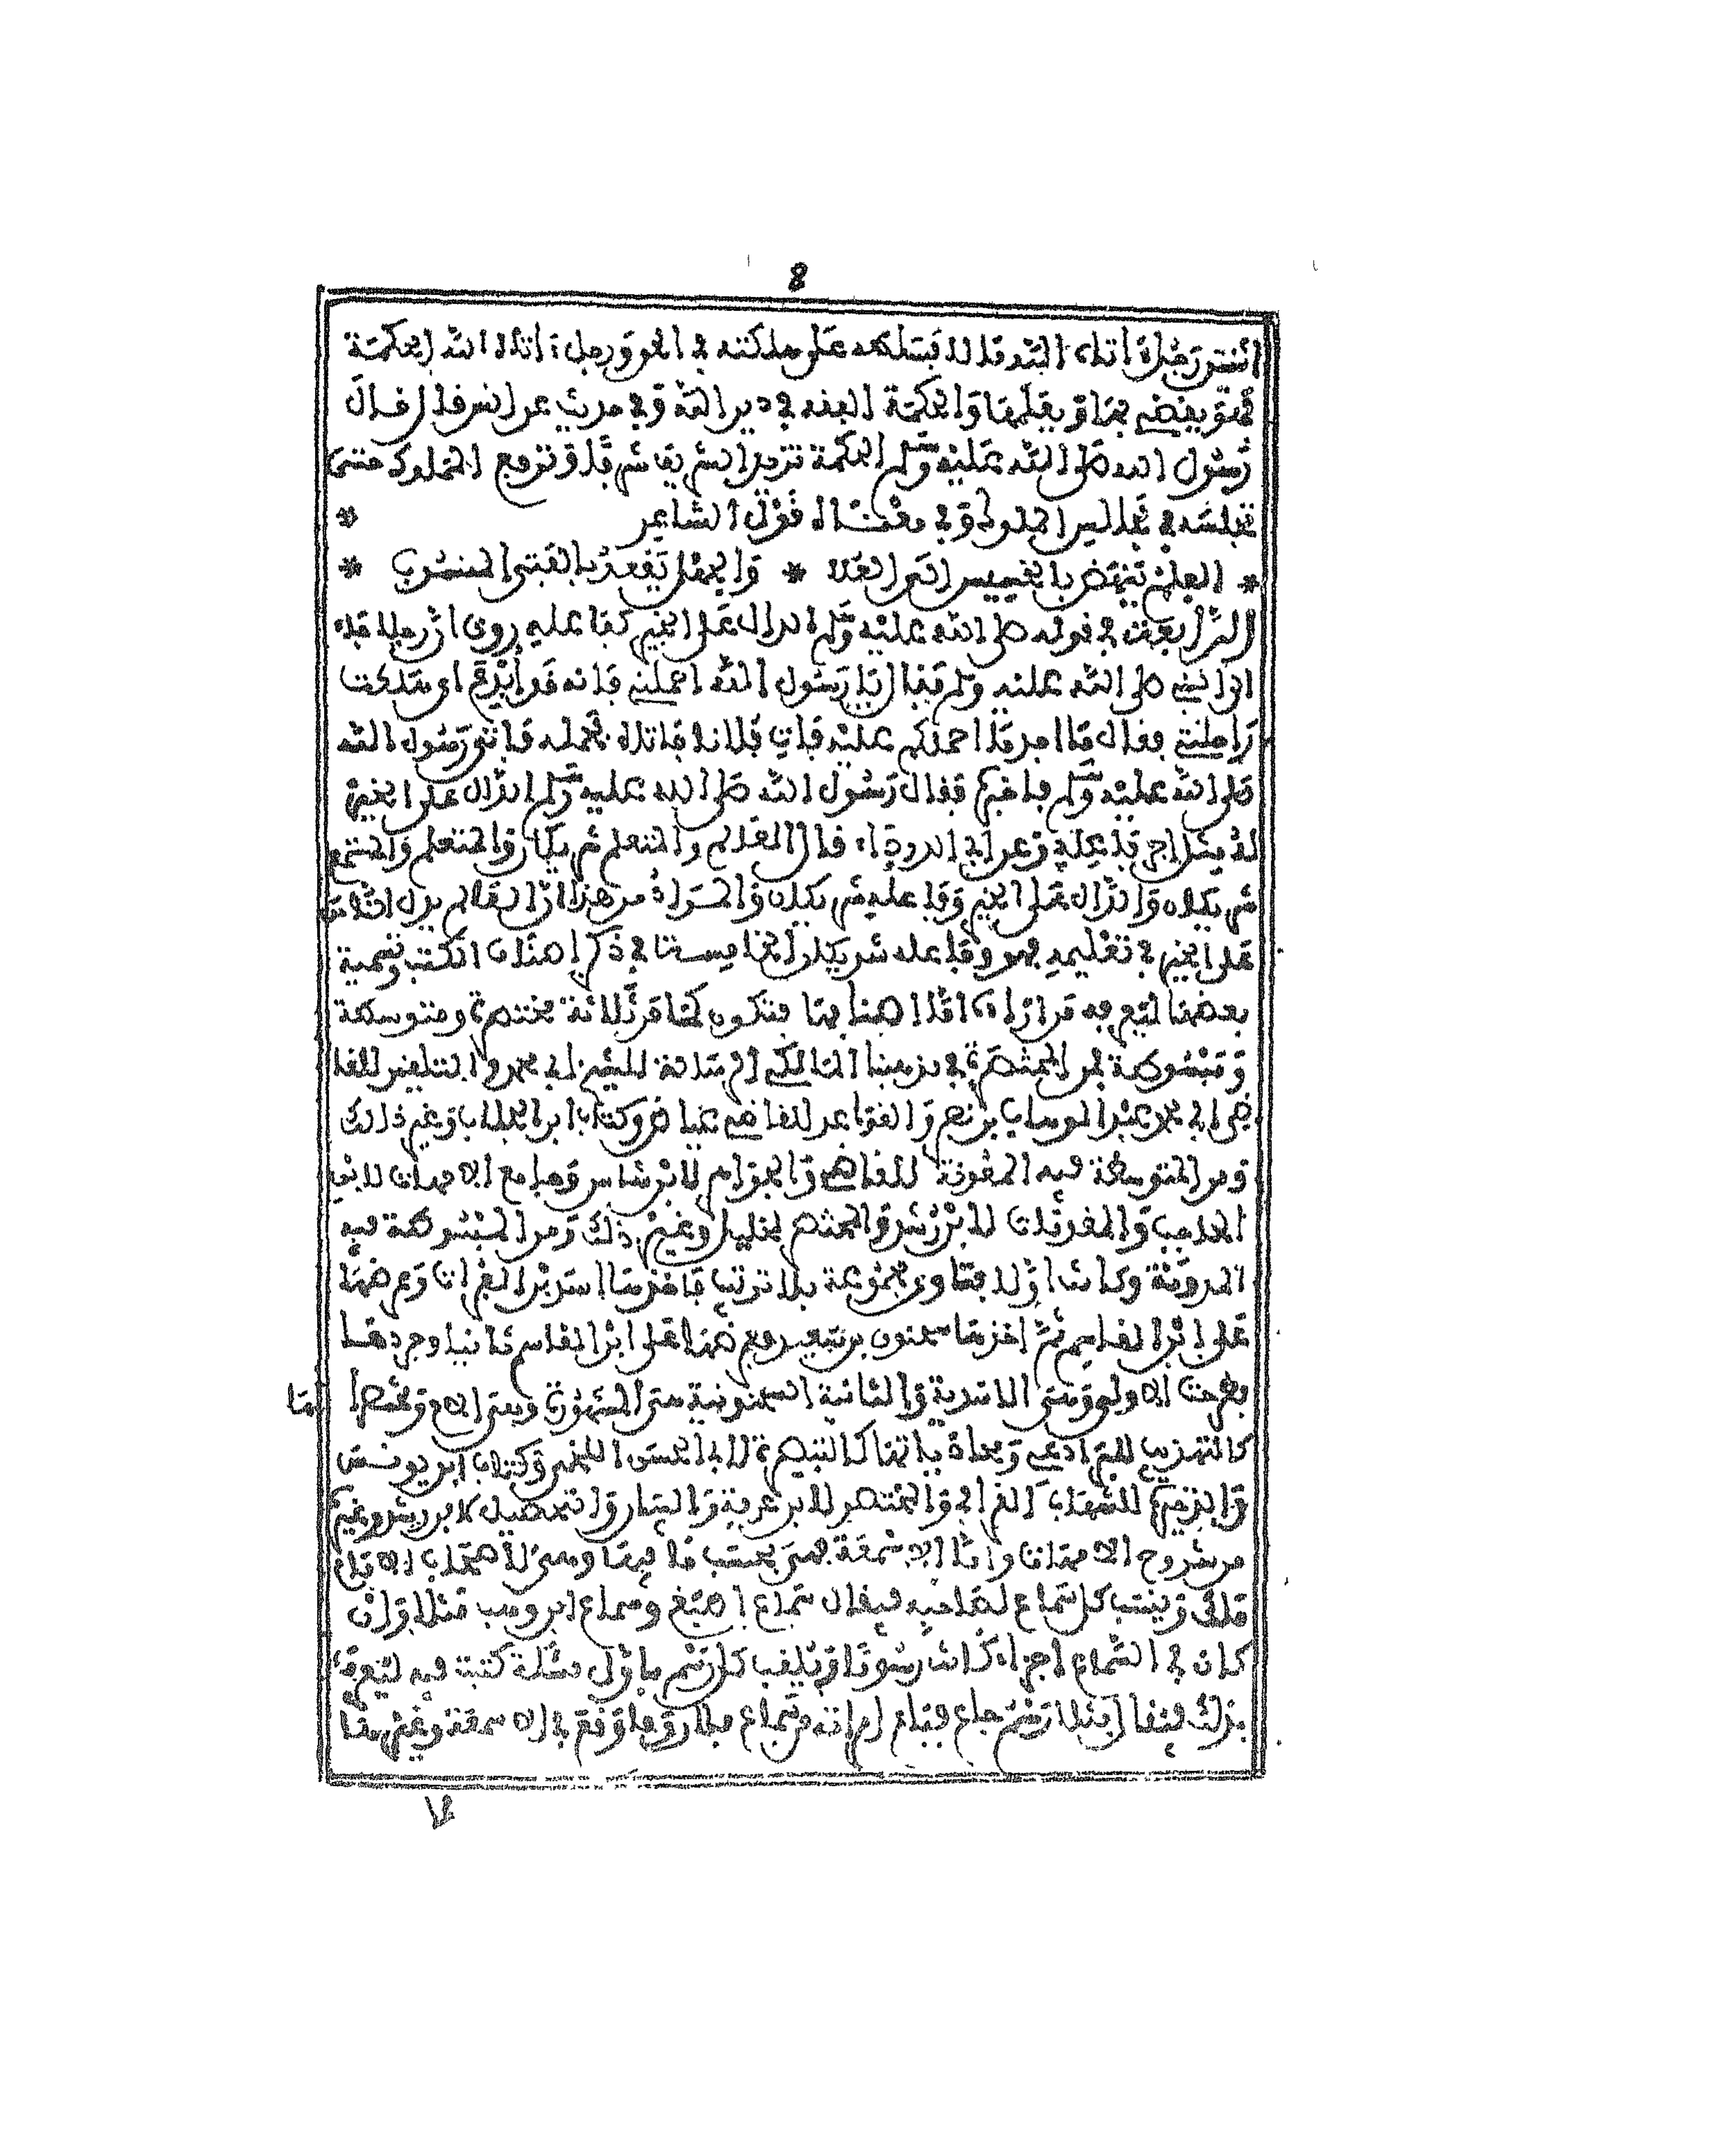 8
اثنتين رجل آتاه الله مالا فسلطه على هلكته في الحق ورجل آتاه الله الحكمة
فهو يقضي بها ويعلمها والحكمة الفقه في دين الله وفي حديث عن أنس قال قال
رسول الله صلى الله عليه وسلم الحكمة تزيد الشريف شرفا وترفع المملوك حتى
تجلسه في مجالس الملوك وفي معناه قول الشاعر *
* العلم ينهض بالخسيس الى العلا * والجهل يقعد بالفتى المنسوب *
الرابعة في قوله صلى الله عليه وسلم الدال على الخير كفاعله روي ان رجلا جاء
الى النبي صلى الله عليه وسلم فقال يا رسول الله احملني فإنه قد أبدع اي هلكت
راحلتي فقال ما اجد ما احملكم عليه فات فلانا فاتاه فحمله فاتى رسول الله
صلى الله عليه وسلم فاخبره فقال رسول الله صلى الله عليه وسلم الدال على الخير
له مثل اجر فاعله وعن ابي الدرداء قال العالم والمتعلم شريكان والمتعلم والمستمع
شريكان والدال على الخير وفاعله شريكان والمراد من هذا ان العالم يدل الناس
على الخير في تعليمه فهو وفاعله شريكان الخامسة في ذكر اصناف الكتب وتسمية
بعضها لتعرفه من ازاد اما اصنافها فتكون كما مر ثلاثة مختصرة ومتوسطة
ومبسوطة فمن المختصرة في مذهبنا المالكي الرسالة للشيخ ابي محمد والتلقين للقا
ضي ابي محمد عبد الوهاب بن نصر والقواعد للقاضي عياض وكتاب ابن الجلاب وغير ذالك
ومن المتوسطة فيه المعونة للقاضي والجواهر لابن شاس وجامع الامهات لابن
الحاجب والمقدمات لابن رشد والمختصر لخليل وغير ذلك ومن المبسوطة فيه
المدونة وكانت اولا فتاوى مجموعة بلا ترتيب فاخذها اسد بن الفرات وعرضها
على ابن القاسم ثم اخذها سحنون بن سعيد وعرضها على ابن القاسم ثانيا وجردها
فطرحت الاولى وهي الاسدية والثانية السحنونية هي المشهورة وهي الام ومختصراتها
كالتهذيب للبرادعي ومحاذياتها كالتبصرة لابي الحسن اللخمي وكتاب ابن يونس
والذخيرة للشهاب القرافي والمختصر لابن عرفة والبيان والتحصيل لابن رشد وغيره
من شروح الامهات واما الاسمعة فهي بحسب ما فيها وهي لاصحاب الامام
مالك وينسب كل سماع لصاحبه فيقال سماع اصبغ وسماع ابن وهب مثلا وان
كان في السماع اجزاء كانت رسوما ويلقب كل رسم باول مسئلة كتبت فيه لتعرف
بذلك فيقال مثلا رسم جاع فباع امراته من سماع فلان وما وقع في الاسمعة وغيرها